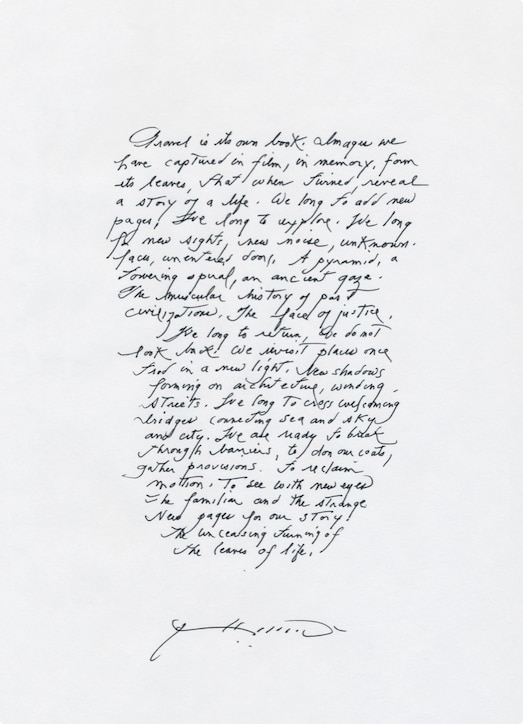 Travel is its own book. Images we
have captured in film, in memory, form
its leaves, that when turned, reveal
a story of a life. We long to add new
pages, We long to explore. We long
for new sights, new noise, unknown
faces, unentered doors, A pyramid, a
towering spiral, an ancient gaze.
The muscular history of past
civilizations. The face of justice.
We long to return, we do not
look back! We revisit places once
trod in a new light. New shadows
forming on architecture, winding
streets. We long to cross welcoming
bridges connecting sea and sky
and city. We are ready to break
through barriers, to don our coats,
gather provisions. To reclaim
motion. To see with new eyes
The familiar and the strange
New pages for our story!
The unceasing turning of
the leaves of life.